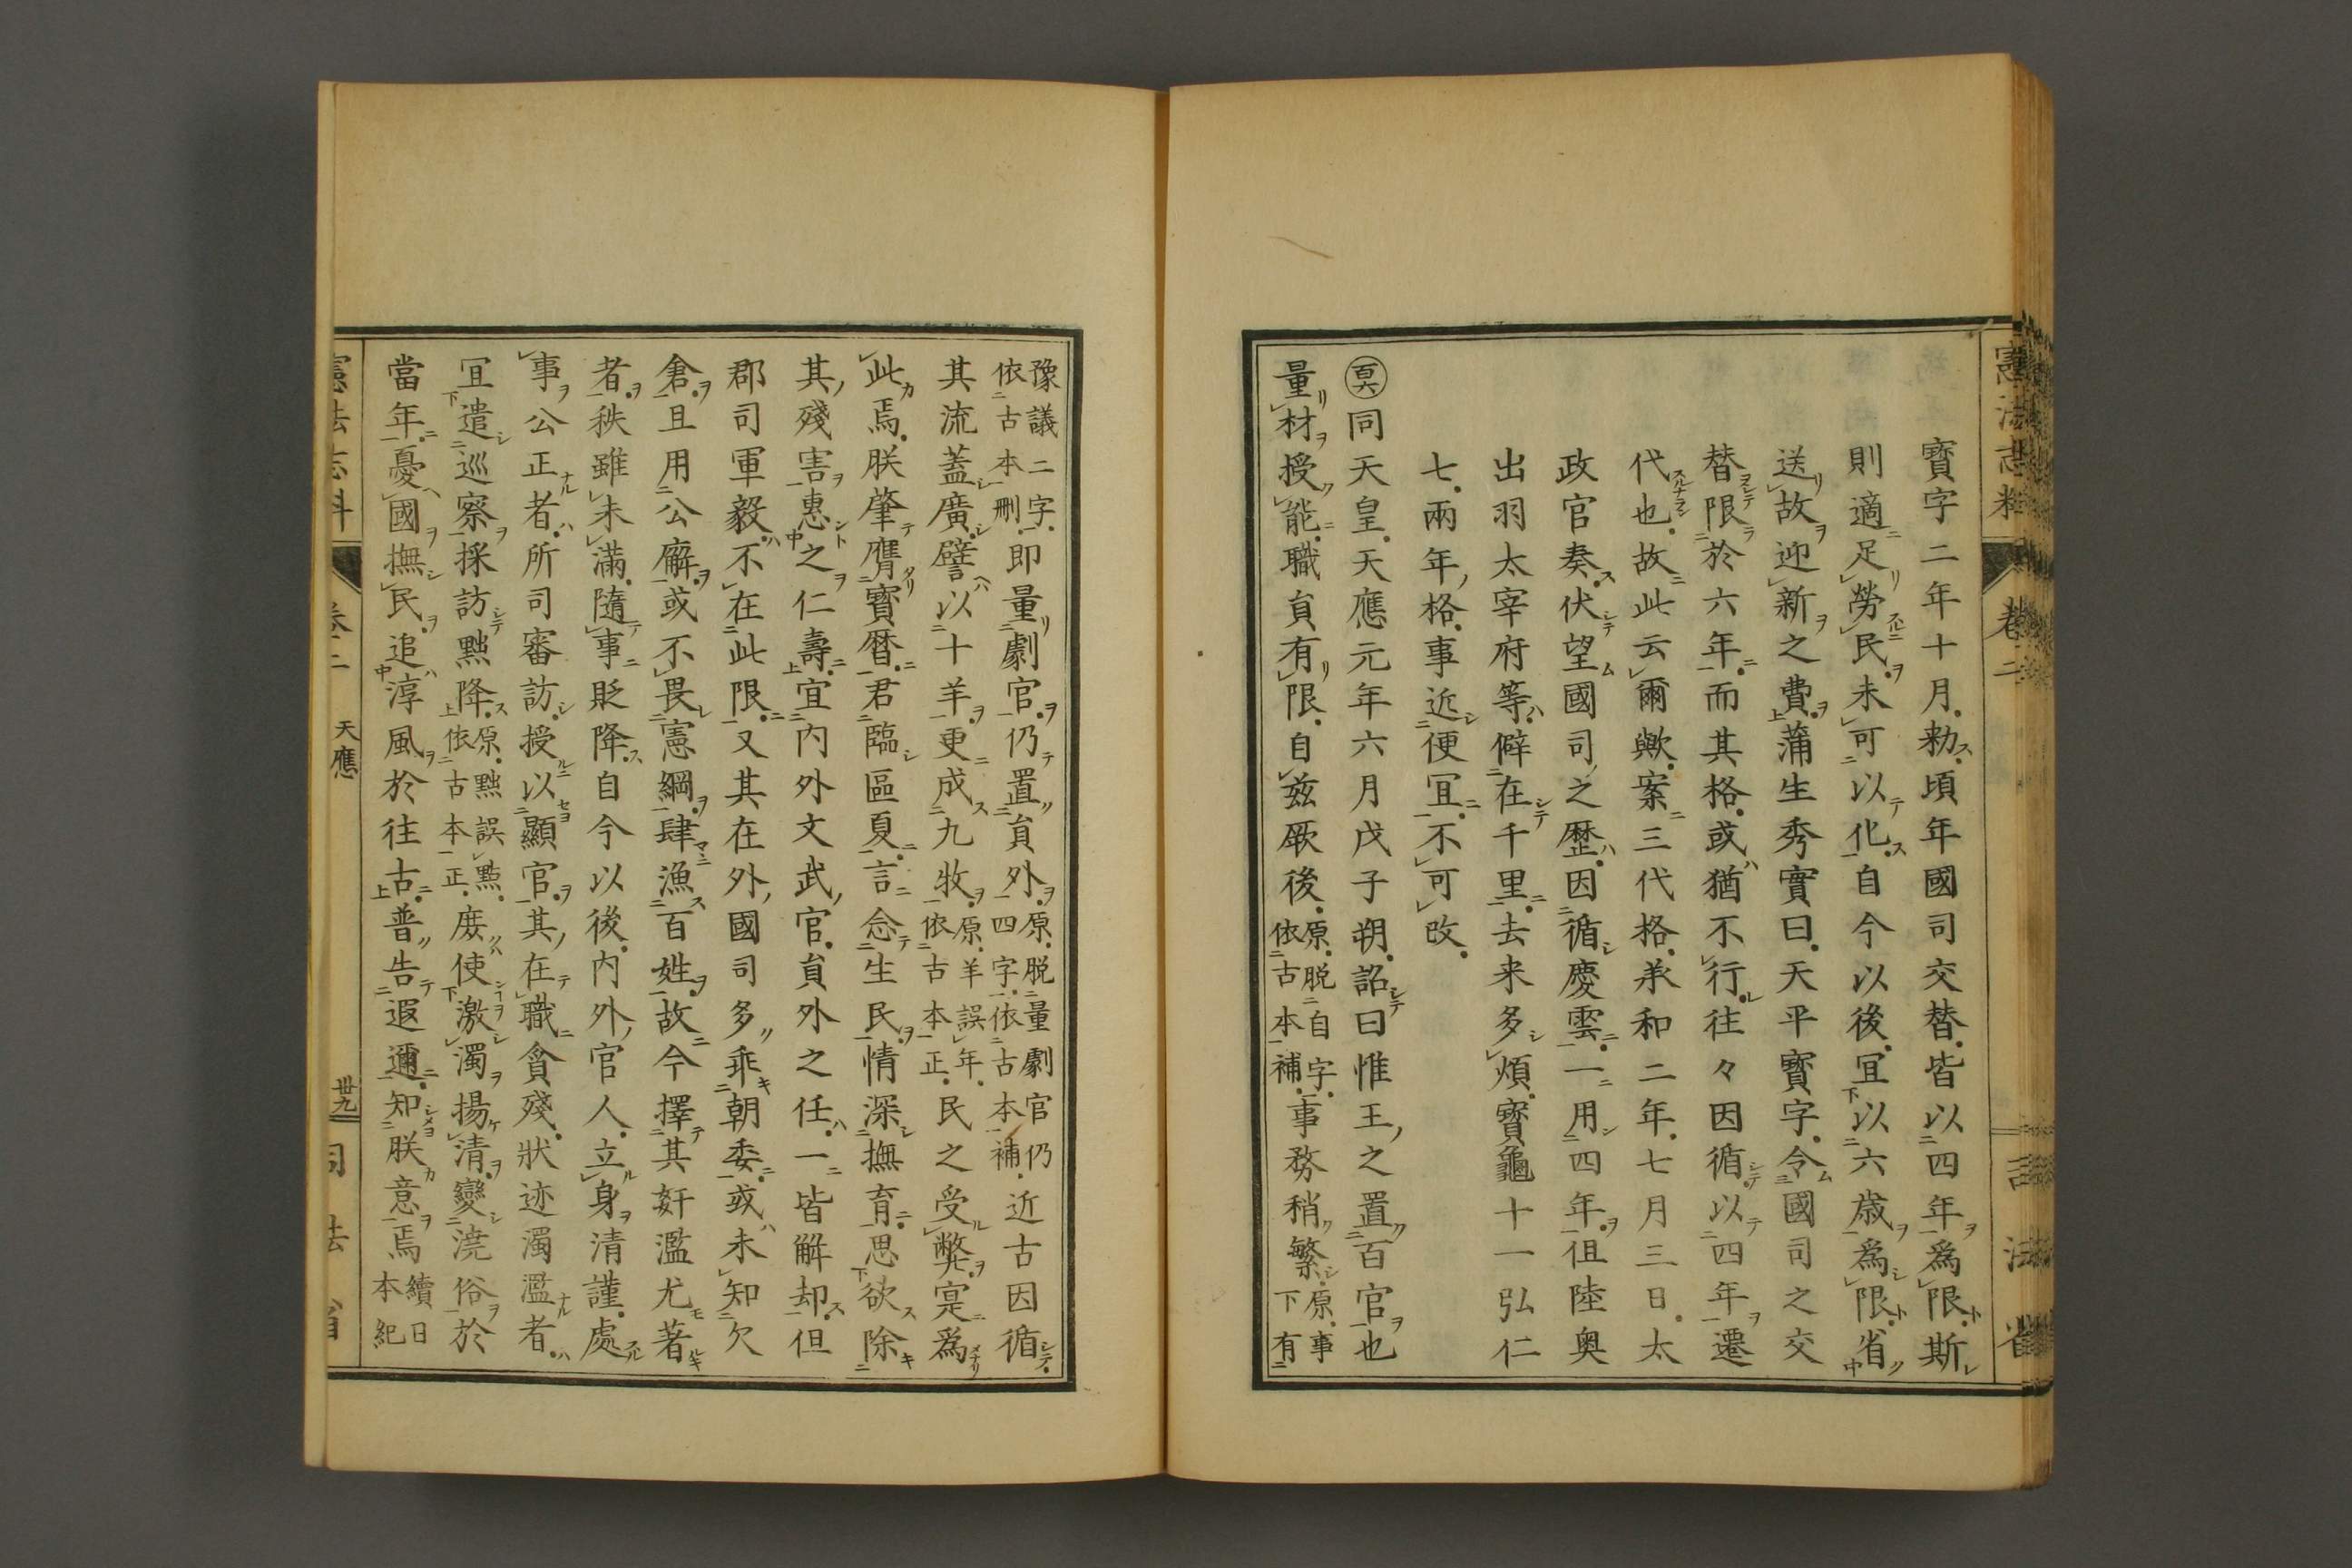 憲法志料 卷二 司法省
寶字二年十月勅頃年國司交替皆以四年爲限斯
則適足勞民未可以化自今以後宜以六歳爲限省
送故迎新之費蒲生秀實曰天平寳字令國司之交
替限於六年而其格或猶不行往々因循以四年遷
代也故此云爾歟案三代格承和二年七月三日太
政官奏伏望國司之歷因循慶雲一用四年但陸奥
出羽太宰府等僻在千里去来多煩寳龜十一弘仁
七兩年格事近便宜不可改
百六 同天皇天應元年六月戊子朔詔曰惟王之置百官也
量材授能職員有限自玆厥後原脱自字依古本補事務稍繁原事下有
豫議二字依古本刪即量劇官仍置員外原脱量劇官仍四字依古本補近古因循
其流蓋廣譬以十羊更成九牧原羊誤年依古本正民之受弊寔爲
此焉朕肇膺寳曆君臨區夏言念生民情深撫育思欲除
其殘害惠之仁壽宜内外文武官員外之任一皆解却但
郡司軍毅不在此限又其在外國司多乖朝委或未知欠
倉且用公廨或不畏憲綱肆漁百姓故今擇其奸濫尤著
者秩雖未滿隨事貶降自今以後内外官人立身清謹處
事公正者所司審訪授以顯官其在職貪殘狀迹濁濫者
宜遣巡察採訪黜降原黜誤點依古本正庻使激濁揚清變澆俗於
當年憂國撫民追淳風於往古普告遐邇知朕意焉續日本紀
憲法志料 卷二 天應 卅九 司法省